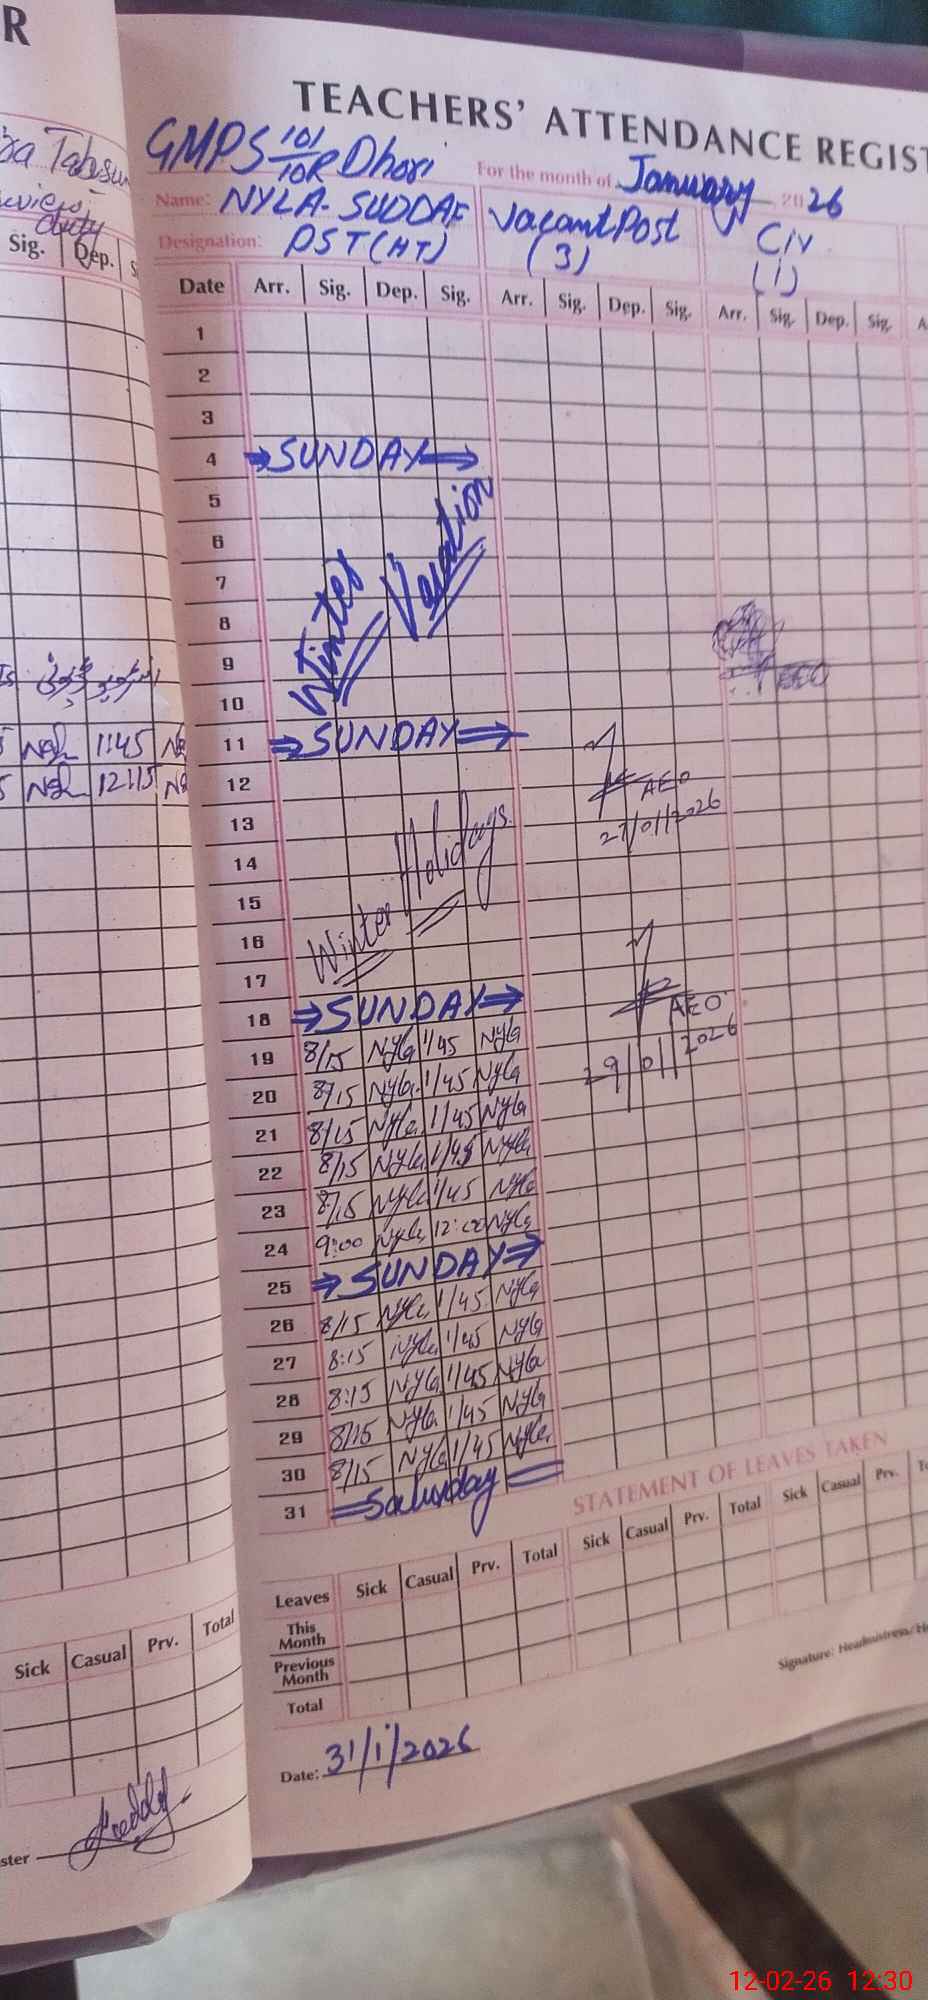 R
TEACHERS' ATTENDANCE REGIST
GMPS 101/10R Dhori
For the month of January 2026
Name: NYLA. SUDDAF
Vacant Post
(3)
CIV
(1)
Designation: PST (HT)
duty
Sig. Dep. S
Date Arr. Sig. Dep. Sig. Arr. Sig. Dep. Sig. Arr. Sig. Dep. Sig. A
1
2
3
4 SUNDAY
5
6
7
8
9
10
Winter Vacation
11 SUNDAY
1:45
12:15
12
13
14
15
16
17
Winter Holidays.
AEO
27/01/2026
18 SUNDAY
AEO
29/01/2026
19 8/15 Nyla 1/45 Nyla
20 8/15 Nyla 1/45 Nyla
21 8/15 Nyla 1/45 Nyla
22 8/15 Nyla 1/45 Nyla
23 8/15 Nyla 1/45 Nyla
24 9:00 Nyla 12:00 Nyla
25 SUNDAY
26 8/15 Nyla 1/45 Nyla
27 8:15 Nyla 1/45 Nyla
28 8:15 Nyla 1/45 Nyla
29 8/15 Nyla 1/45 Nyla
30 8/15 Nyla 1/45 Nyla
31 Saturday
STATEMENT OF LEAVES TAKEN
Leaves Sick Casual Prv. Total Sick Casual Prv. Total Sick Casual Prv. To
This Month
Previous Month
Total
Sick Casual Prv. Total
Signature: Headmistress/He
Date: 31/1/2026
ster
12-02-26 12:30